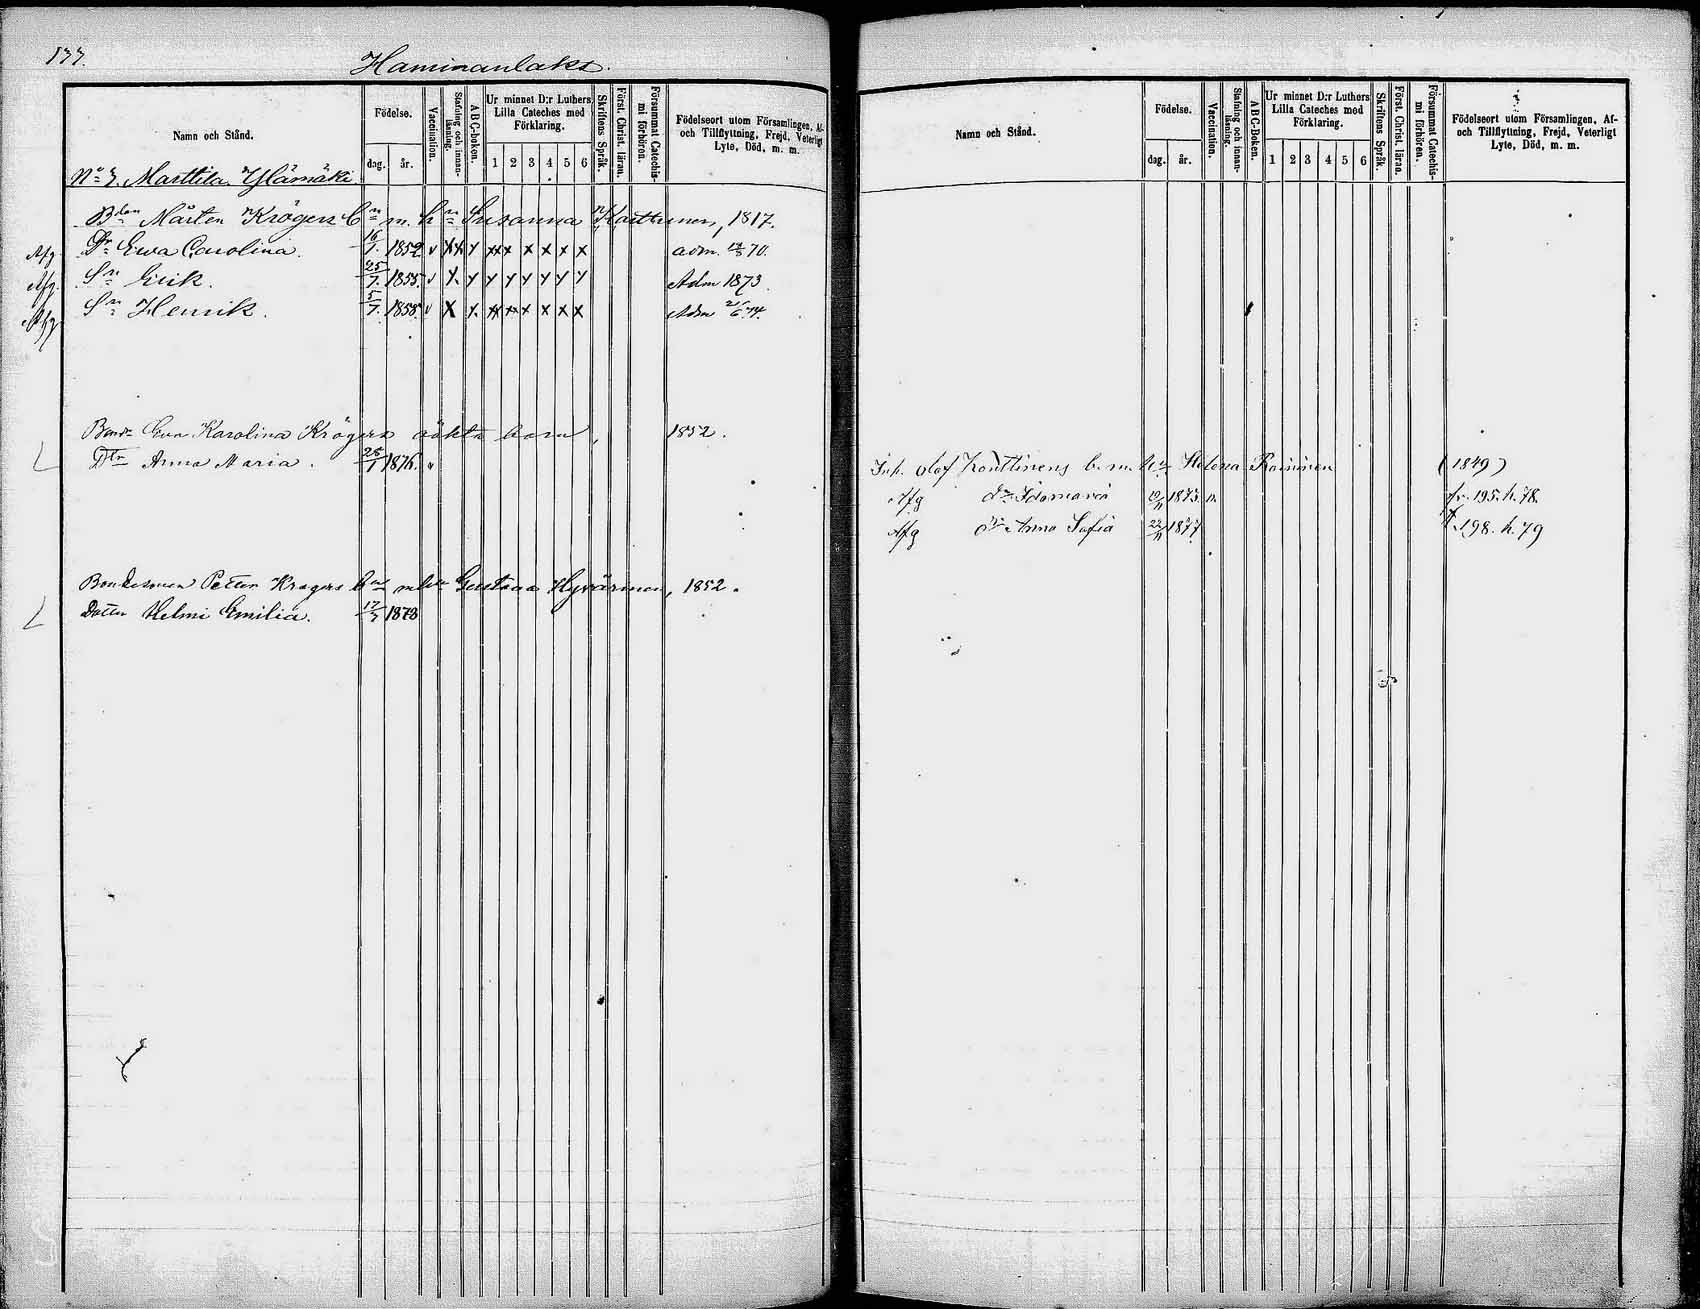 137.
Haminanlaks.
Namn och Stånd.
Födelse.
dag. år.
Vaccination.
Stafning och innan-läsning.
ABC-boken.
Ur minnet D:r Luthers Lilla Cateches med Förklaring.
1 2 3 4 5 6
Skriftens Språk.
Först. Christ. läran.
Försummat Catechis-mi förhören.
Födelseort utom Församlingen, Af- och Tillflyttning, Frejd, Veterligt Lyte, Död, m. m.
Marttila Ylämäki
Bden Mårten Krögers Bn m. hn Susanna Karttunen, 1817.
Afg Dr Ewa Carolina. 16/7. 1852 v X X Y X X X X X X X adm. 70.
Afg. Sn Erik. 25/7. 1855. v X Y Y Y Y Y Y Y Adm 1873.
Afg Sn Henrik. 5/7. 1858. v X X X X X X X X Adm 2/6 74.
Eva Karolina Krögers oäkta barn, 1852.
Dtr Anna Maria. 25/1 1876. v
Bondesonen Petter Krögers bn m hn Gustava Hyvärinen, 1852.
Dotter Helmi Emilia. 17/7 1878
Namn och Stånd.
Födelse.
dag. år.
Vaccination.
Stafning och innan-läsning.
ABC-Boken.
Ur minnet D:r Luthers Lilla Cateches med Förklaring.
1 2 3 4 5 6
Skriftens Språk.
Först. Christ. läran.
Försummat Catechis-mi förhören.
Födelseort utom Församlingen, Af- och Tillflyttning, Frejd, Veterligt Lyte, Död, m. m.
Inh. Olof Konttinens b. m. hu Helena Raininen (1849)
Afg dr Idamaria 10/11 1875 v. fr. 195. h. 78.
Afg dr Anna Sofia 22/11 1877 198. h. 79